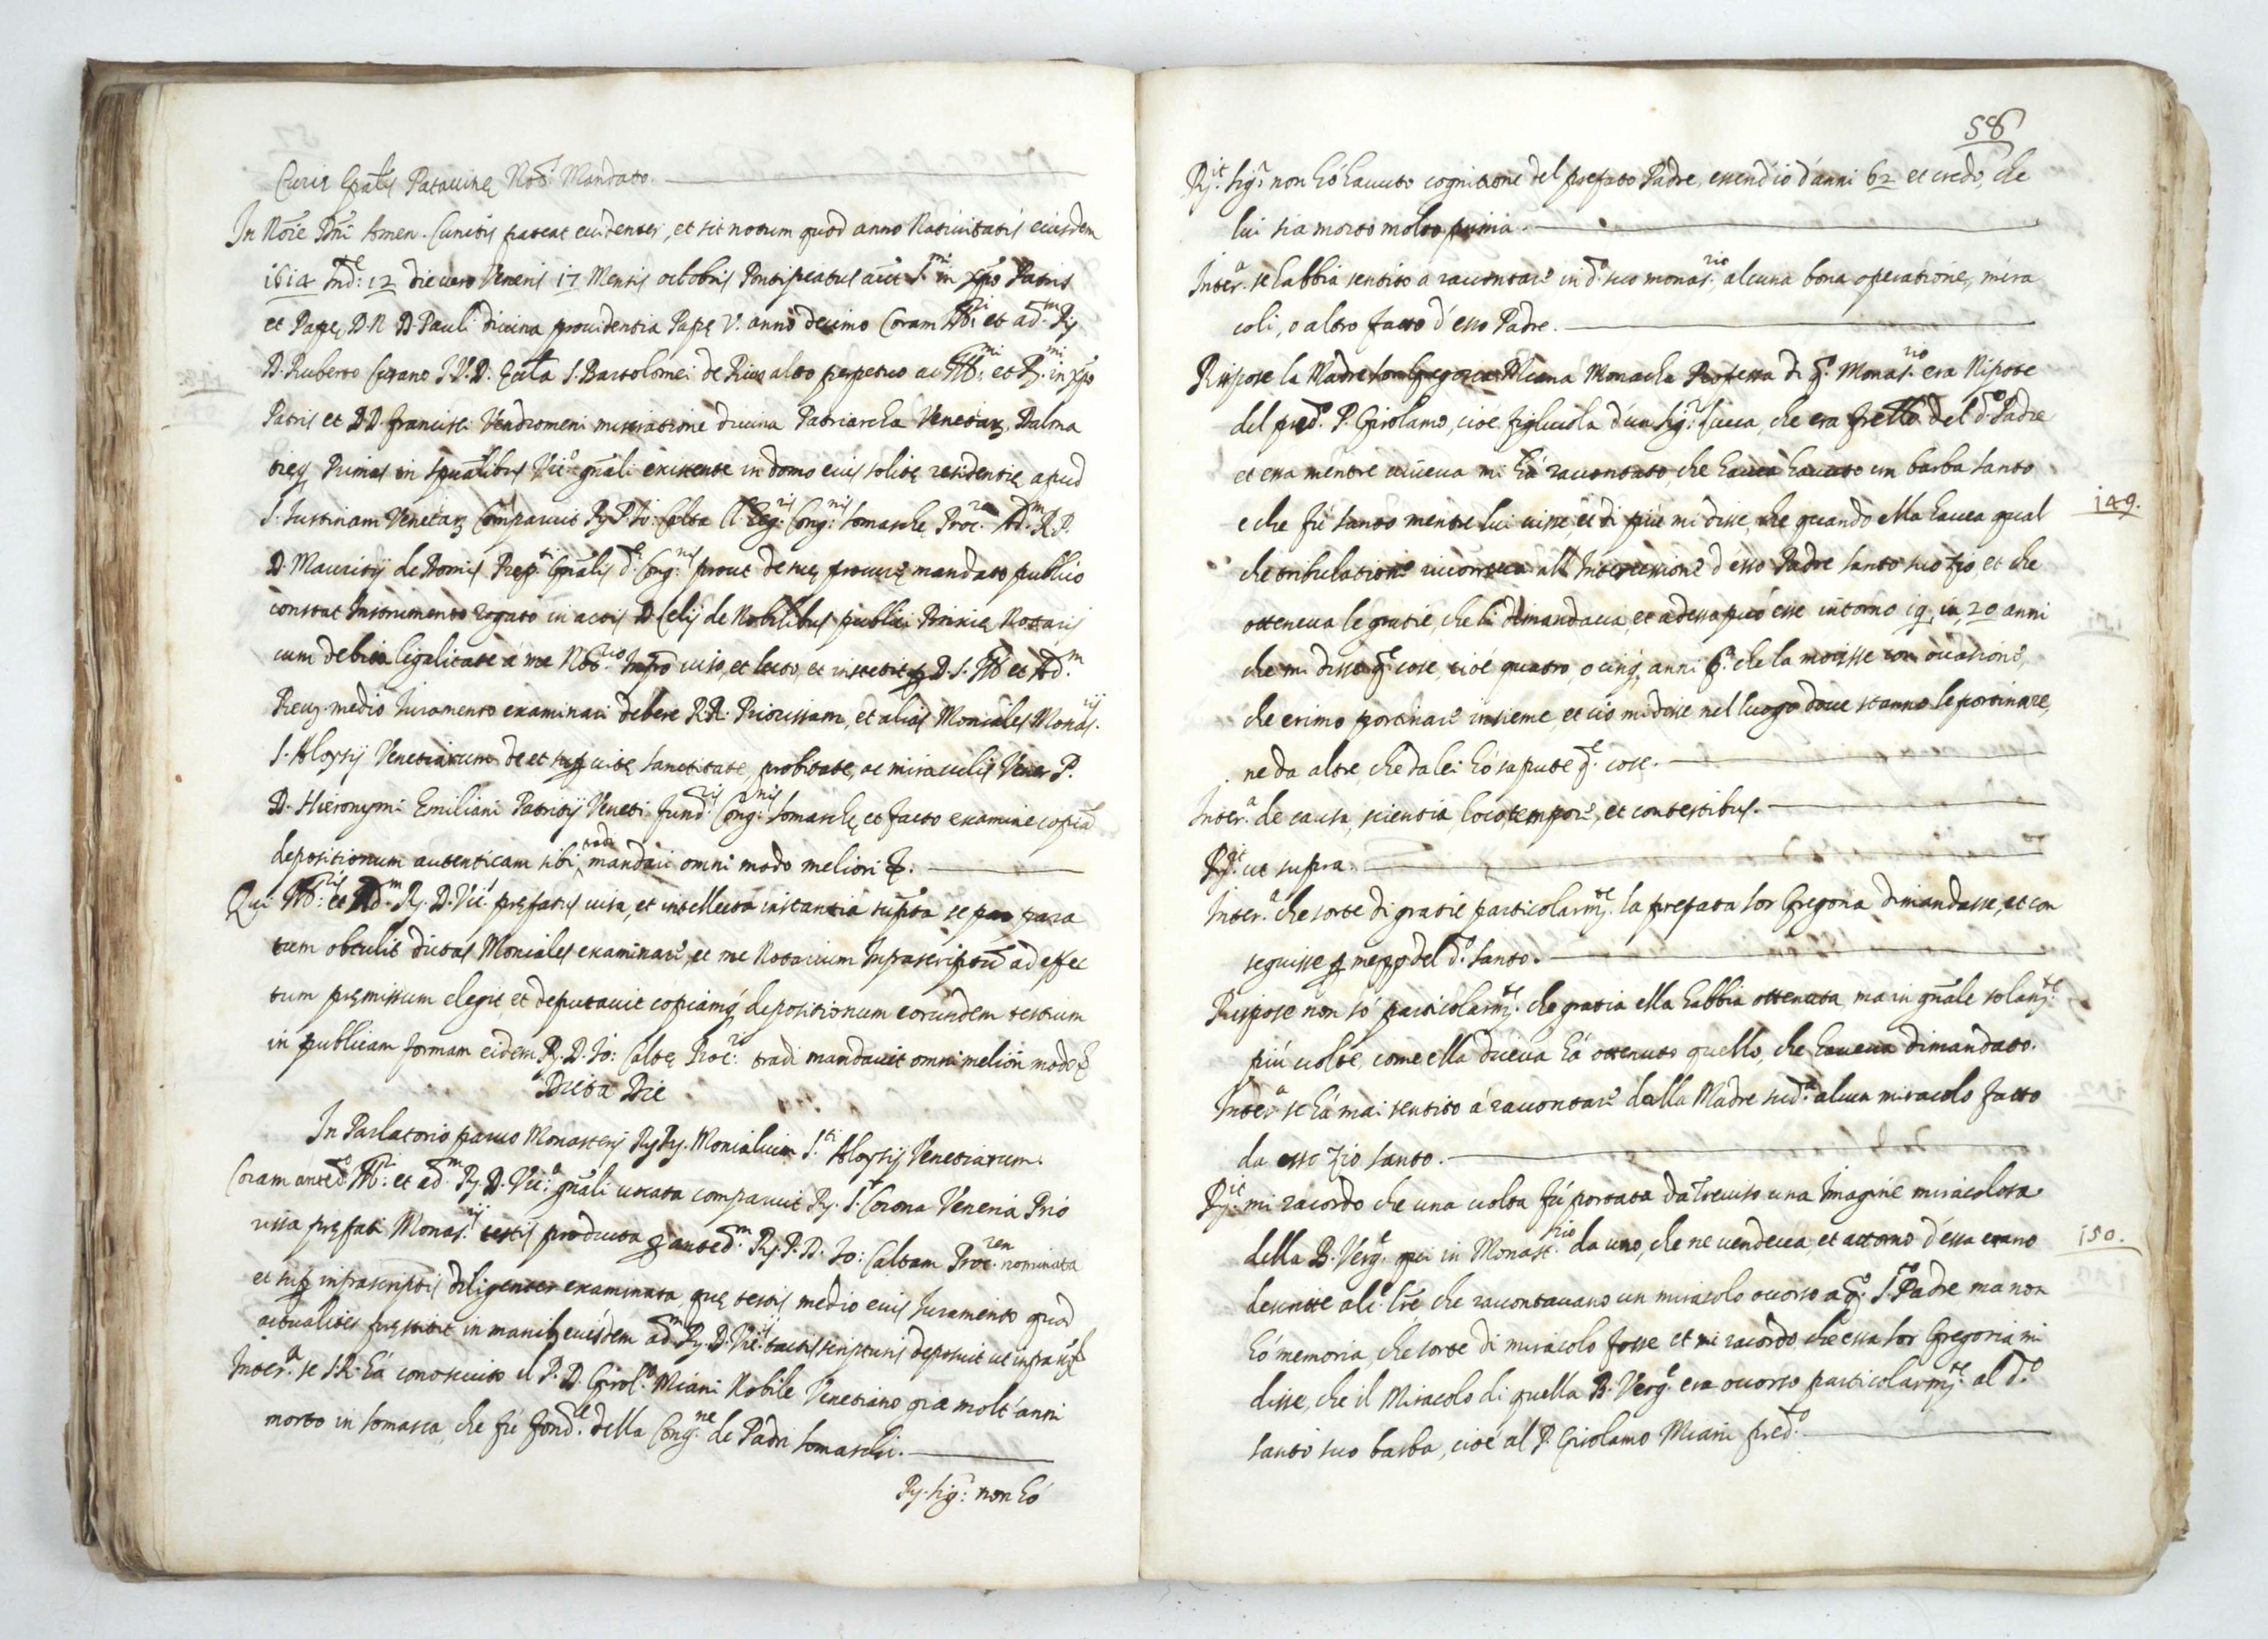 Curię Epalis Patavinę Not.s Mandato.
In Noīe Dnī Amen. Cunctis pateat evidenter, et sit notum quod anno Nativitatis eiusdem
1614 Ind.e 12 die vero Veneris 17 Mensis octobris Pontificatus aūt S.mi in xpo Patris
et Papę D. N. D. Pauli divina providentia Papę V. anno decimo Coram Ill.i et ad.m R.
D. Ruberto Curano I. V. D. Eccla S. Bartolomei de Rivo alto perpetuo ac Ill.mi et R.mi in xpo
Patris et D D. Francisci Vendromeni miseratione divina Patriarcha Venetiar. Dalma
tięq Primas in spūalibus Vic.o gnāli existente in domo eius solitę residentię apud
S. Iustinam Venetiar. Comparuit R. P. Io: Calta Cl. Reg.ris Cong.nis Somaschę Proc.re Ad.m R. P.
D. Mauritij de Domis Prep.ti Gnālis d.e Cong.nis prout de suę procurę mandato publico
constat Instrumento rogato in actis D. Celij de Nobilibus publici Brixię Notarij
cum debita legalitate a me Not.rio Infro viso, et lecto, et institit p D. S. Ill. et Ad.m
Reu. medio Iuramento examinari debere R.R. Priorissam, et alias Moniales Monas.rij
S. Aloysij Venetiarum de et sup vitę sanctitate, probitate, ac miraculis Vener. P.
D. Hieronymi Emiliani Patritij Veneti fund.ris Cong.nis Somaschę, et facto examine copiā
depositionum autenticam sibi tradi mandari omni modo meliori &.
Qui Ill.is et Ad.m R. D. Vic.s prefatus visa, et intellecta instantia supta se par para
tum obtulit dictas Moniales examinare, et me Notarium Infrascriptū ad effec
tum pręmissum elegit, et deputavit copiamq depositionum eorundem testium
in publicam formam eidem R. D. Io: Caltę Proc.ri tradi mandavit omni meliori modo &
Dicta Die
In Parlatorio parvo Monasterij RR. Monialium S.ti Aloysij Venetiarum.
Coram anted.o Ill.i et ad.m R. D. Vic.o gnāli vocata comparuit R. S. Corona Veneria Prio
rissa pręfati Monas.rij testis producta p anted.m R. P. D. Io: Caltam Proc.ren nominata
et sup infrascriptis diligenter examinata, quę testis medio eius Iuramento quod
actualiter pręstitit in manib. eiusdem ad.m R. D. Vic.ij tactis scripturis deposuit ut infra vz
Inter.a se S. R. há conosciuto il P. D. Girol.o Miani Nobile Venetiano gia molt'anni
morto in Somasca, che fú fond.e della Cong.ne de Padri Somaschi.
R. Sig.r non hó
58
R.it Sig.r non hó havuto cognitione del prefato Padre, essend'io d'anni 62 et credo, che
lui sia morto molto prima.
Inter.a se habbia sentito a racontare in d.o suo monas.rio alcuna bona operatione, mira
coli, o altro fatto d'esso Padre.
Rispose la Madre Sor Gregoria Miana Monacha Professa di q.o Monas.rio era Nipote
del pred.o P. Girolamo, cioé figliuola d'un Sig.r Lucca, che era frello del d.o Padre
et essa mentre viveva mi há racontato che havea havuto un barba santo
e che fú santo mentre lui visse, et di piu mi disse, che quando ella havea qual
149.
che tribulatione ricorreva all'Intercessione d'esso Padre santo suo zio, et che
otteneva le gratie, che li dimandava, et adesso può esse intorno 19, in, 20 anni
che mi disse q.e cose, cioé quatro, o cinq. anni p.a che la morisse con ocasione,
che erimo portinare insieme, et ció mi disse nel luogo dove stanno le portinare,
ne da altre, che da lei hó sapute q.e cose.
Inter.a de causa, scientia, loco, tempore, et contestibus.
R.it ut supra.
Inter.a che sorte di gratie particolarm.te la prefata Sor Gregoria dimandasse, et con
seguisse p mezzo del d.o Santo.
Rispose non só particolarm.te che gratia ella habbia ottenuta, ma in gnāle solam.te
piú volte, come ella diceva há ottenuto quello, che haveva dimandato.
Inter.a se há mai sentito á racontare dalla Madre sud.a alcun miracolo fatto
da esso zio santo.
R.it mi racordo che una volta fú portata da Treviso una Imagine miracolosa
della B. Verg.e qui in Monast.rio da uno, che ne vendeva, et attorno d'essa erano
150.
descritte alc.e lrē che racontavano un miracolo ocorso a q.o S.to Padre ma non
hó memoria, che sorte di miracolo fosse et mi racordo che essa Sor Gregoria mi
disse, che il Miracolo di quella B. Verg.e era ocorso particolarm.te al d.o
santo suo barba, cioé al P. Girolamo Miani pred.o